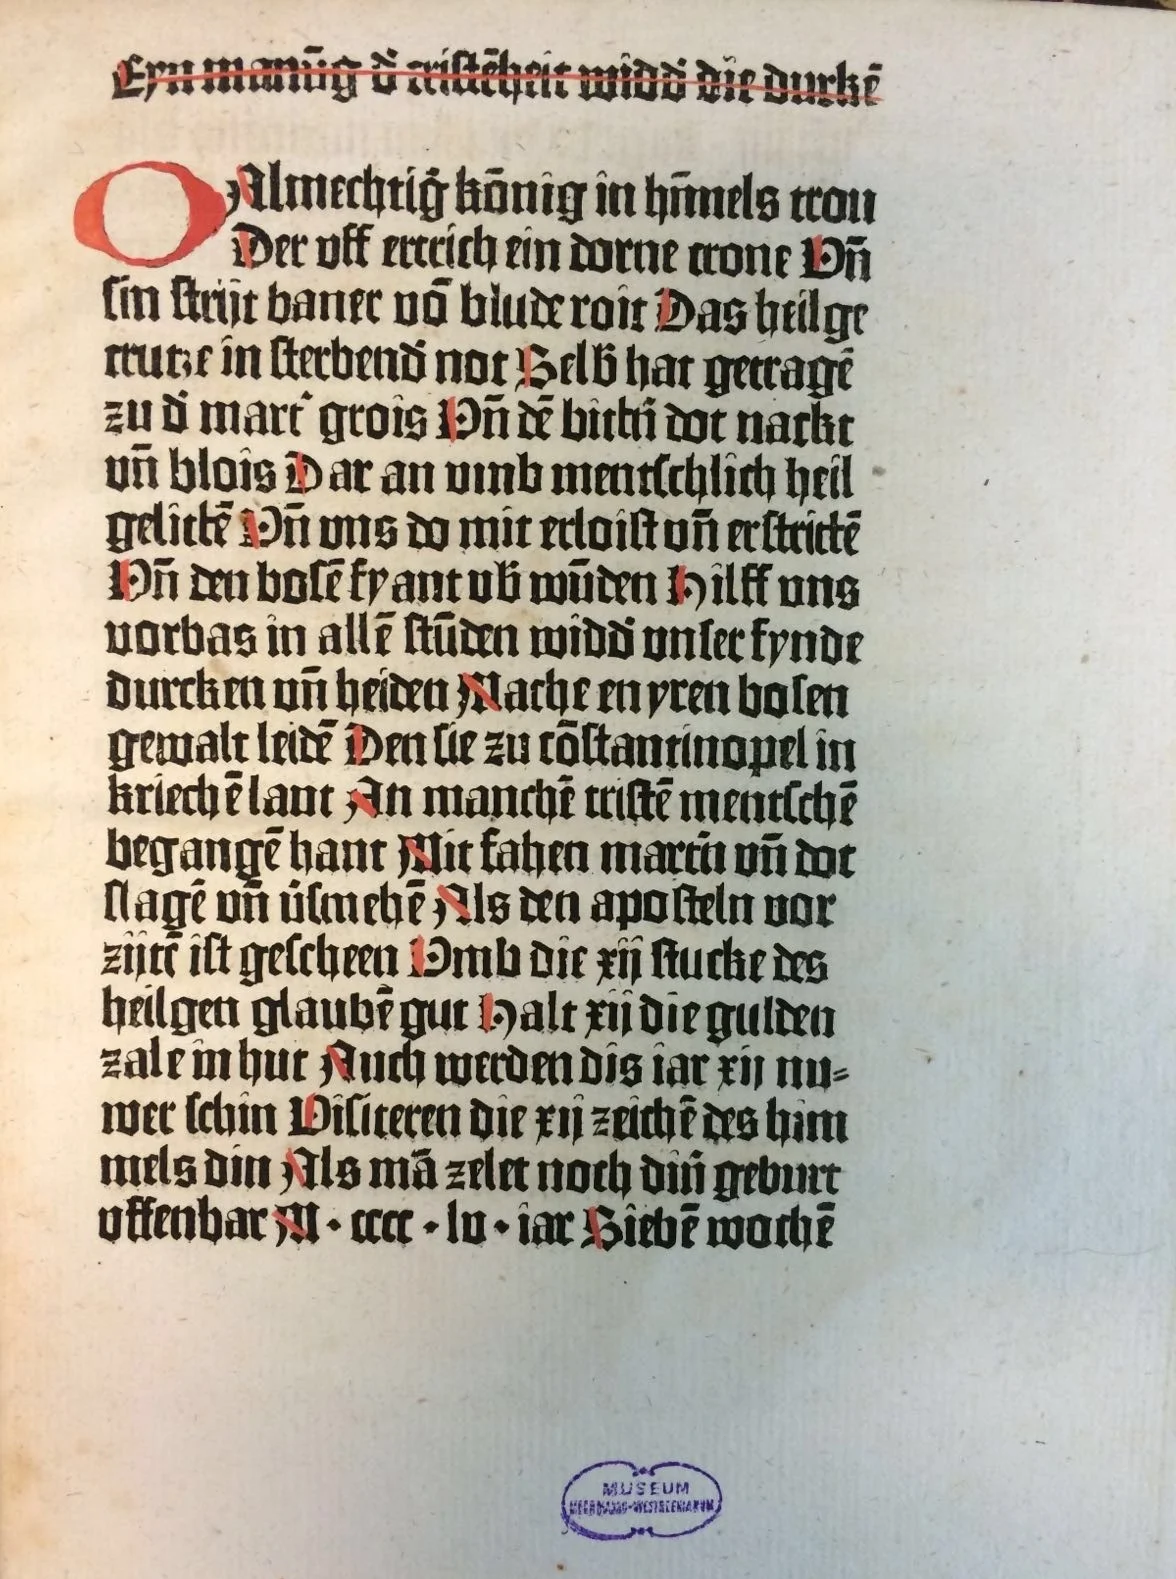 Eyn manūg d̄ cristēheit widd̄ die durkē
O Almechtiḡ kōnig in hīmels tron
Der uff ertrich ein dorne crone Vn̄
sin strijt baner vō blude roit Das heilge
crutze in sterbend̄ not Selb̄ hat getragē
zu d̄ mart̕ grois Vn̄ dē bittn̄ dot nackt
vn̄ blois Dar an vmb mentschlich heil
gelittē Vn̄ vns do mit erloist vn̄ erstrictē
Vn̄ den bosē fyant vb̄ wūden Hilff vns
vorbas in allē stūden widd̄ vnser fynde
durcken vn̄ heiden Mache en yren bosen
gewalt leidē Den sie zu cōstantinopel in
kriechē lant An manchē cristē mentschē
begangē hant Mit fahen martn̄ vn̄ dot
slagē vn̄ v̄smehē Als den aposteln vor
zijtē ist gescheen Vmb die xij stucke des
heilgen glaubē gut Halt xij die gulden
zale in hut Auch werden dis iar xij nu=
wer schin Visiteren die xij zeichē des him
mels din Als mā zelet noch din̄ geburt
offenbar M · cccc · lv · iar Siebē wochē
MUSEUM
MEERMANNO-WESTREENIANVM